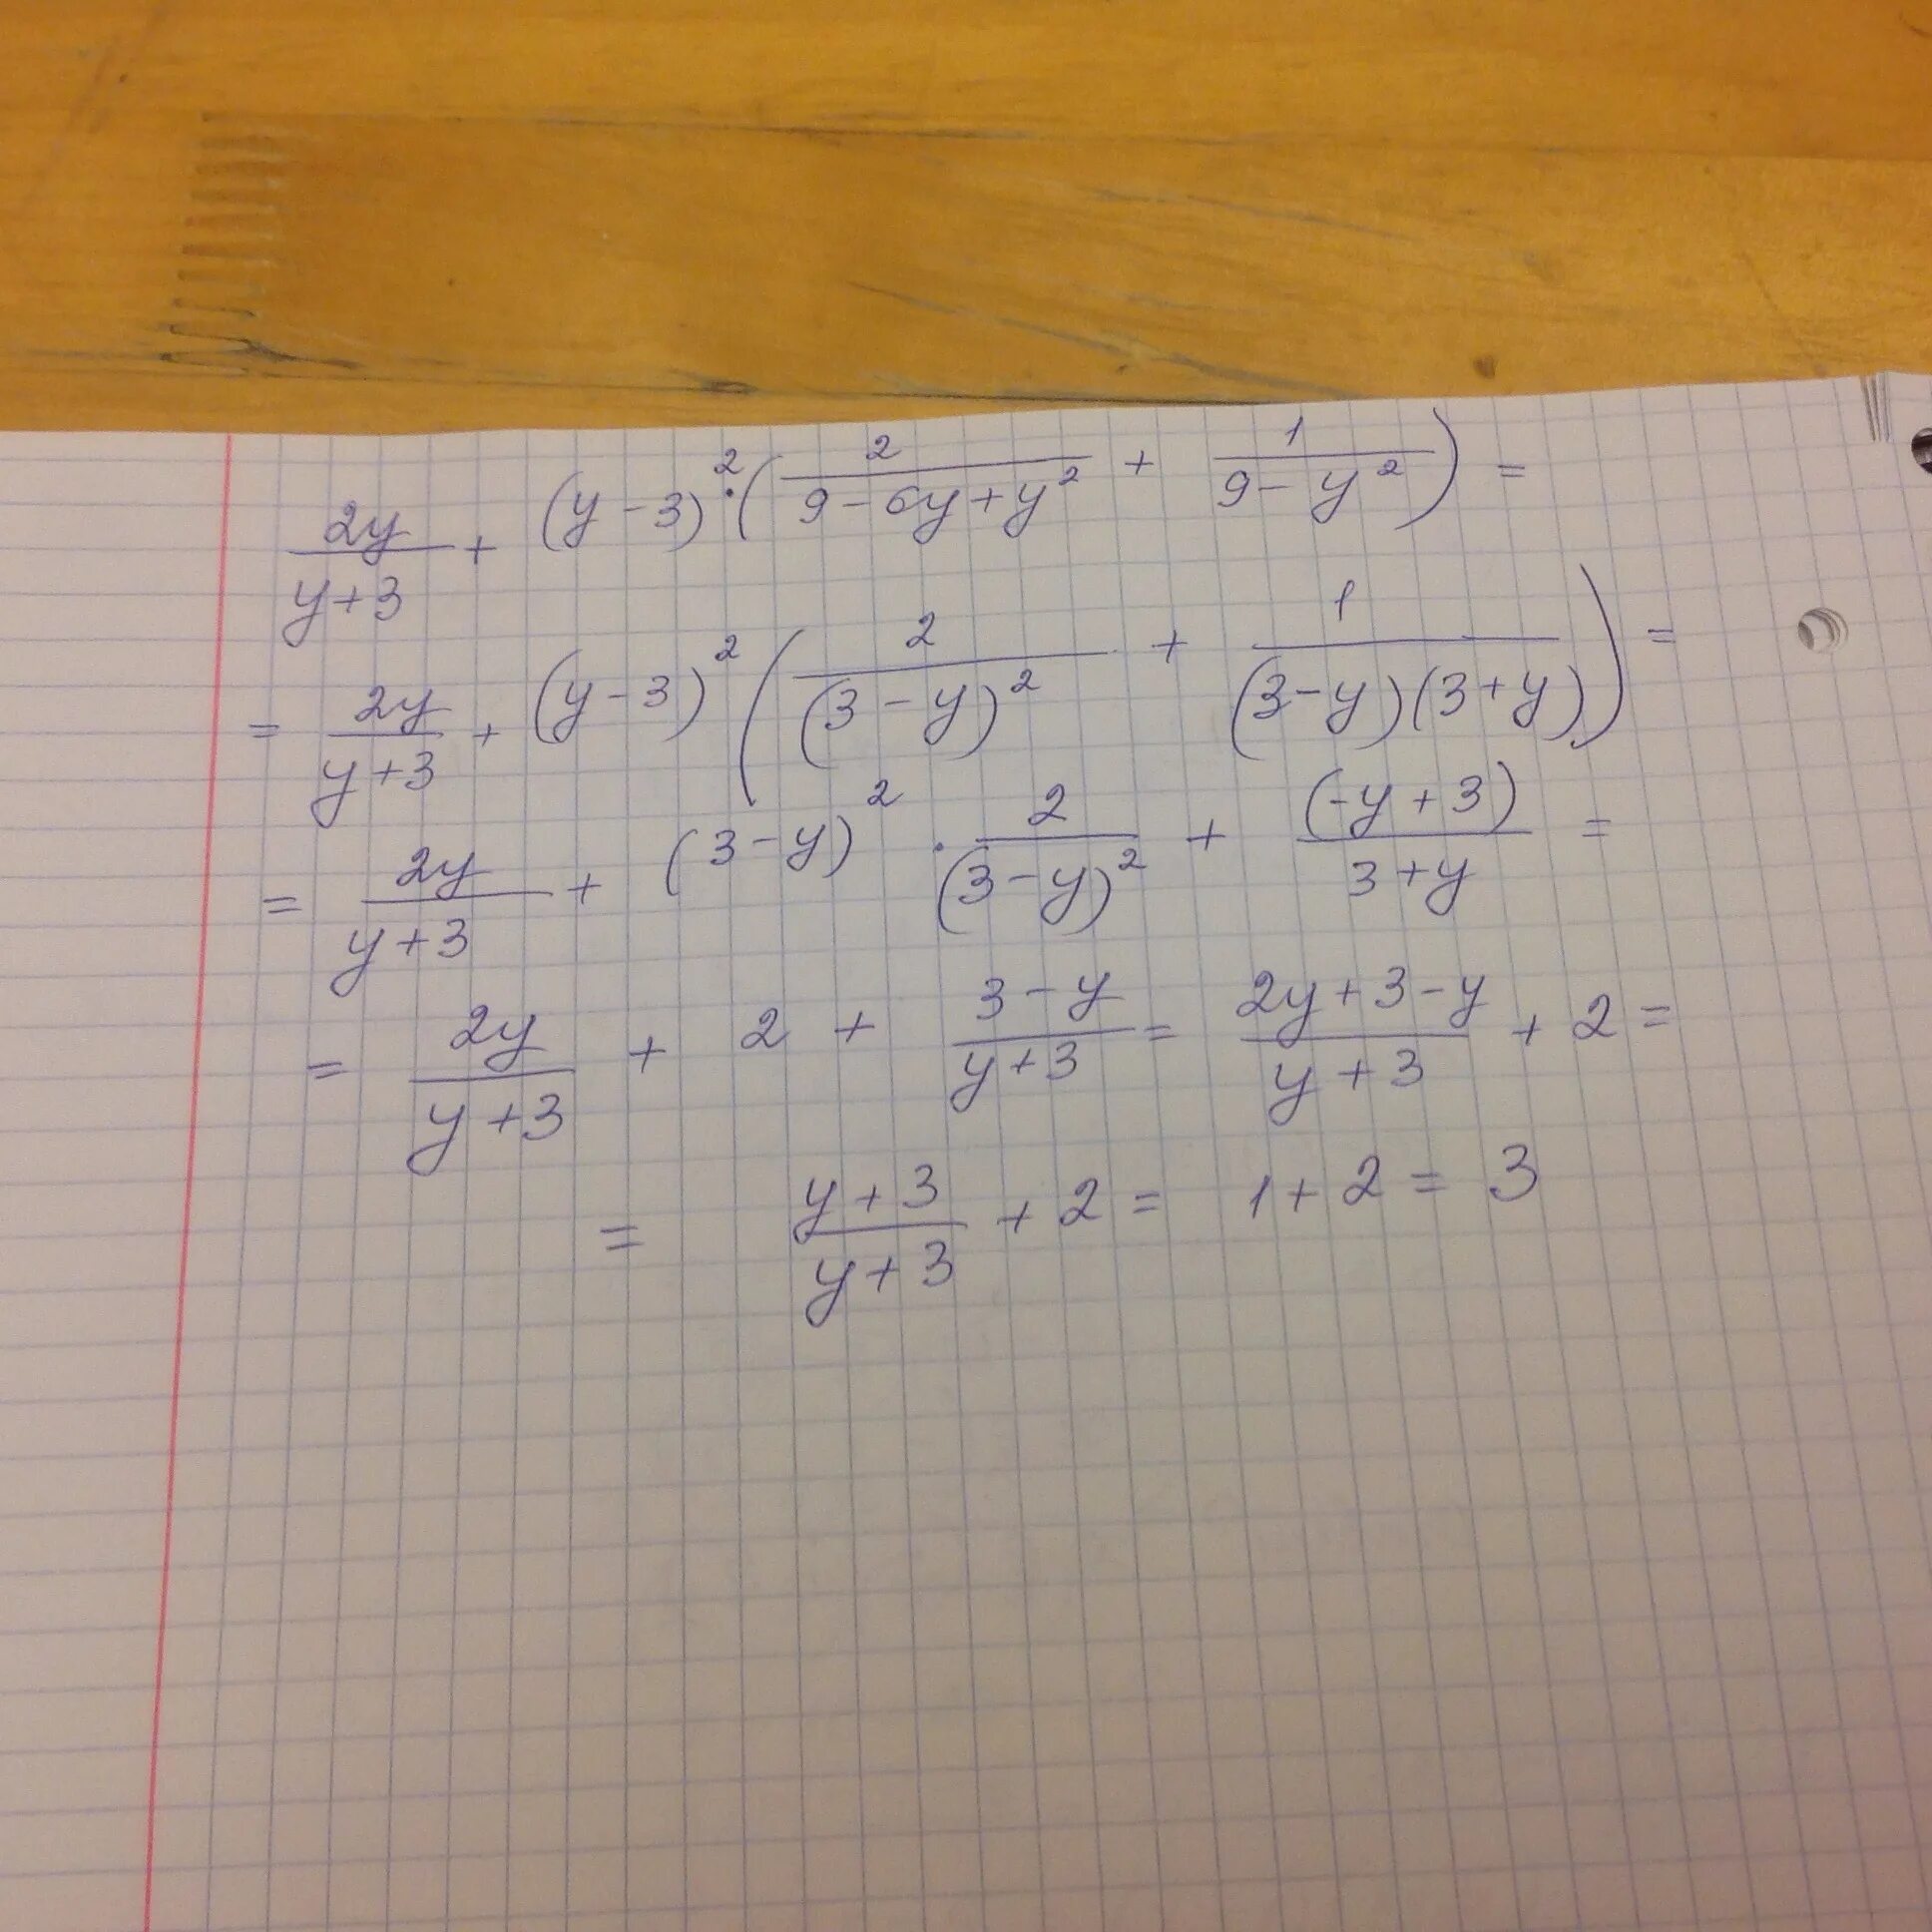 2y/(y+3) + (y-3)²·(2/(9-6y+y²) + 1/(9-y²)) =
= 2y/(y+3) + (y-3)²(2/(3-y)² + 1/((3-y)(3+y))) =
= 2y/(y+3) + (3-y)² · 2/(3-y)² + (-y+3)/(3+y) =
= 2y/(y+3) + 2 + (3-y)/(y+3) = (2y+3-y)/(y+3) + 2 =
= (y+3)/(y+3) + 2 = 1+2 = 3